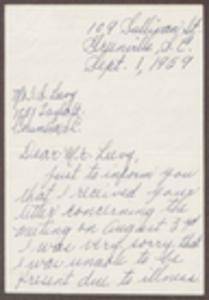 109 Sullivan St.
Greenville, S.C.
Sept. 1, 1959
Mr. I. S. Levy
1731 Taylor St.
Columbia, S.C.
Dear Mr. Levy,
Just to inform you
that I received your
letter concerning the
meeting on August 3rd
I was very sorry that
I was unable to be
present due to illness